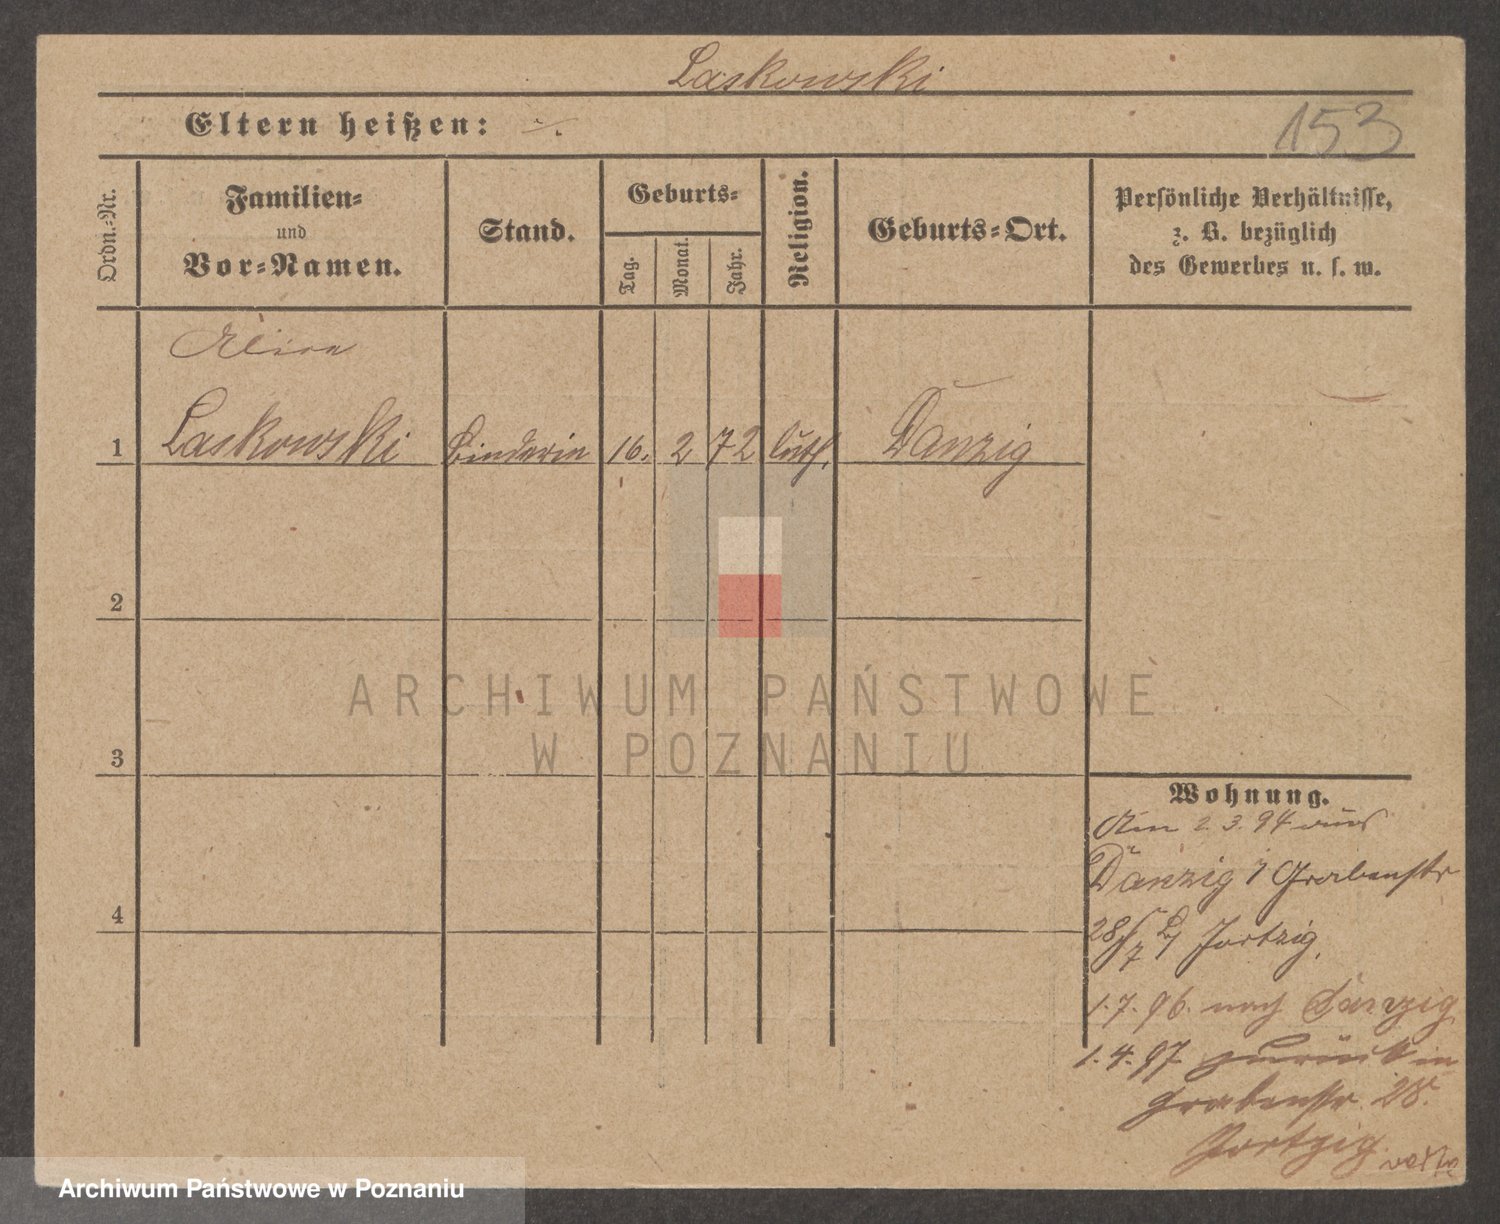 Laskowski
Eltern heißen: ./.
153
Ordn.-Nr.
Familien-
und
Vor-Namen.
Stand.
Geburts-
Tag.
Monat.
Jahr.
Religion.
Geburts-Ort.
Persönliche Verhältnisse,
z. B. bezüglich
des Gewerbes u. s. w.
1 Laskowski Binderin 16. 2 72 luth. Danzig
2
3
4
Wohnung.
Am 2.3.94 aus
Danzig Grabenstr
28
1.7.96. nach Danzig
1.4.97 zurück in
Grabenstr. 28.
ARCHIWUM PAŃSTWOWE
W POZNANIU
Archiwum Państwowe w Poznaniu